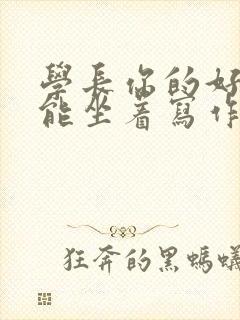 學長你的好
能坐著寫作
狂奔的黑螞蟻